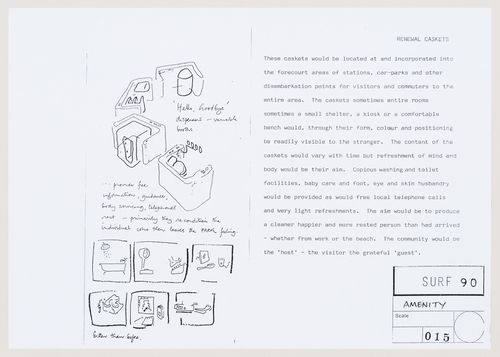 'Hello, Goodbye'
dispensers - variable
booths
... provide free
information, guidance,
body servicing, telephones
rest - primarily they recondition the
individual who then leaves the AREA feeling
better than before.
RENEWAL CASKETS
These caskets would be located at and incorporated into
the forecourt areas of stations, car-parks and other
disembarkation points for visitors and commuters to the
entire area. The caskets sometimes entire rooms
sometimes a small shelter, a kiosk or a comfortable
bench would, through their form, colour and positioning
be readily visible to the stranger. The content of the
caskets would vary with time but refreshment of mind and
body would be their aim. Copious washing and toilet
facilities, baby care and foot, eye and skin husbandry
would be provided as would free local telephone calls
and very light refreshments. The aim would be to produce
a cleaner happier and more rested person than had arrived
- whether from work or the beach. The community would be
the 'host' - the visitor the grateful 'guest'.
SURF 90
AMENITY
Scale
015